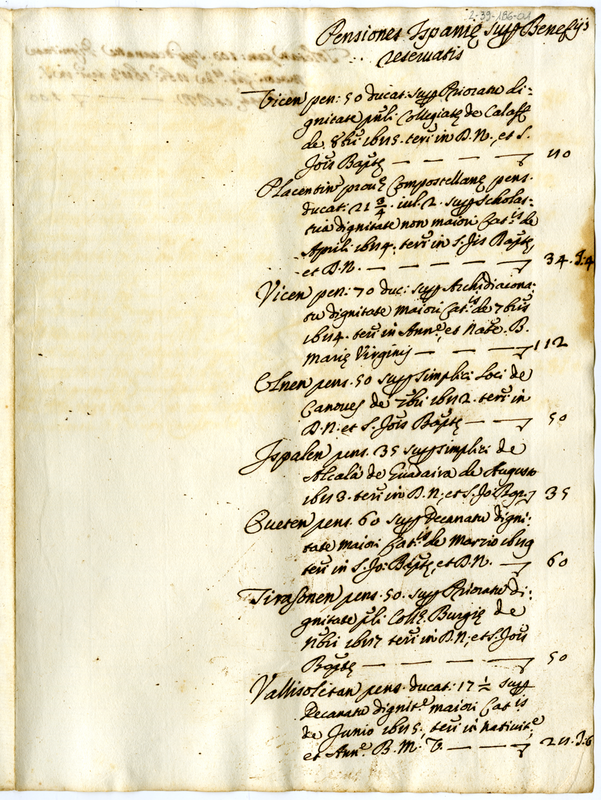 2-39-186-01
Pensiones Ispanię supr Beneficijs
reservatis
Vicen pen: 50 ducat: supr Prioratu di-
gnitate prńli Collegiatę de Calaff
de 8bri 1645. teri in D.N., et S.
Jois Baptę — 40
Placentin prouę Compostellanę pens.
ducat: 21 3/4 iul 2. supr scholas-
tria dignitate non maiori Cat.lis de
Aprili 1644. teri in S. Jis Baptę
et D.N. — 34. J:4
Vicen pen: 70 duc: supr Archidiacona-
tu dignitate maiori Cat.lis de 7bris
1644. teri in Ann.e, et Natie. B.
Marię Virginis — 112
pens. 50 supr simplici loci de
Canoues de 7bri 1642. teri in
D.N. et S. Jois Baptę — 50
Ispalen pens. 35 supr simplici de
Alcalà de Guadaira de Augusto
1643. teri in D.N., et S. Jo Bap. 35
pens. 60 supr Decanatu digni-
tate maiori Cat.lis de Marzio 1649
teri in S. Jo: Baptę, et D.N. — 60
Tirasonen pens. 50. supr Prioratu di-
gnitate prńli Collę. Burgię de
Nbri 1647 teri in D.N., et S. Jois
Baptę — 50
Vallisolitan pens. ducat. 17 1/2 supr
Decanatu dignit.e maiori Cat.lis
de Junio 1645, teri in nativit.e
et Ann.e B.M.V. — 24. J:6